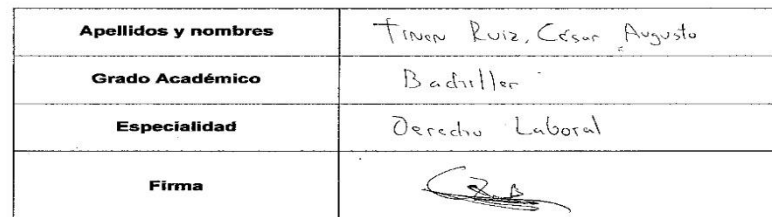 Apellidos y nombres Tinen Ruiz, César Augusto
Grado Académico Bachiller
Especialidad Derecho Laboral
Firma